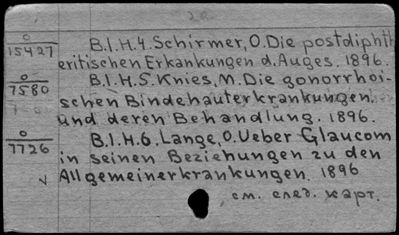 O
15427
B.I.H.4. Schirmer, O. Die postdiphth
eritischen Erkankungen d. Auges. 1896.
O
7580
B.I.H.5. Knies, M. Die gonorrhoi-
schen Bindehauterkrankungen
und deren Behandlung. 1896.
O
7726
B.I.H.6. Lange, O. Ueber Glaucom
in seinen Beziehungen zu den
v Allgemeinerkrankungen. 1896
см. след. карт.